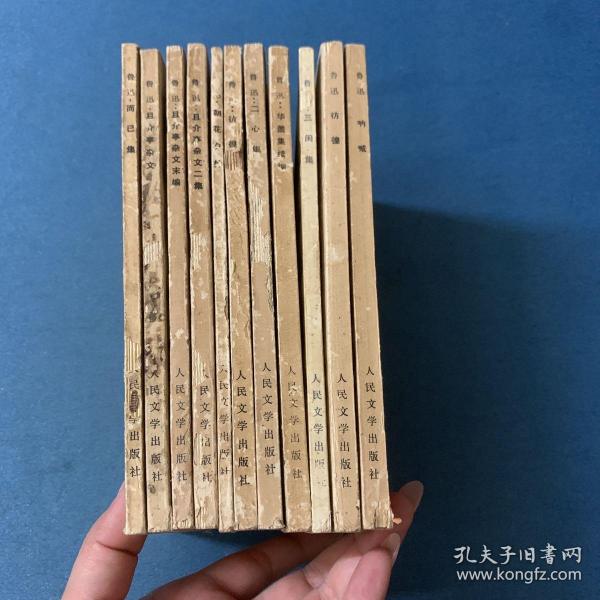 鲁迅:而已集
人民文学出版社
鲁迅:且介亭杂文
人民文学出版社
鲁迅:且介亭杂文末编
人民文学出版社
鲁迅:且介亭杂文二集
人民文学出版社
朝花夕拾
人民文学出版社
鲁迅:彷徨
人民文学出版社
鲁迅:二心集
人民文学出版社
鲁迅:华盖集续编
人民文学出版社
鲁迅:三闲集
人民文学出版社
鲁迅 彷徨
人民文学出版社
鲁迅 呐喊
人民文学出版社
孔夫子旧书网
www.kongfz.com